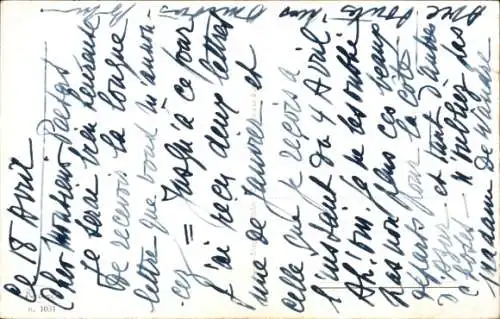 Ce 18 Avril
Cher Monsieur
Je serai très heureuse
de recevoir la longue
lettre que vous m'annon-
cez = Jusqu'à ce jour
j'ai reçu deux lettres
une de Janvier et
celle que je reçois à
l'instant du 4 Avril
Ah! oui. je ne les oublie
pas non plus ces beaux
départs pour la côte
d'Azur et tant d'autres
choses - n'oubliez pas
Madame de
n. 1031